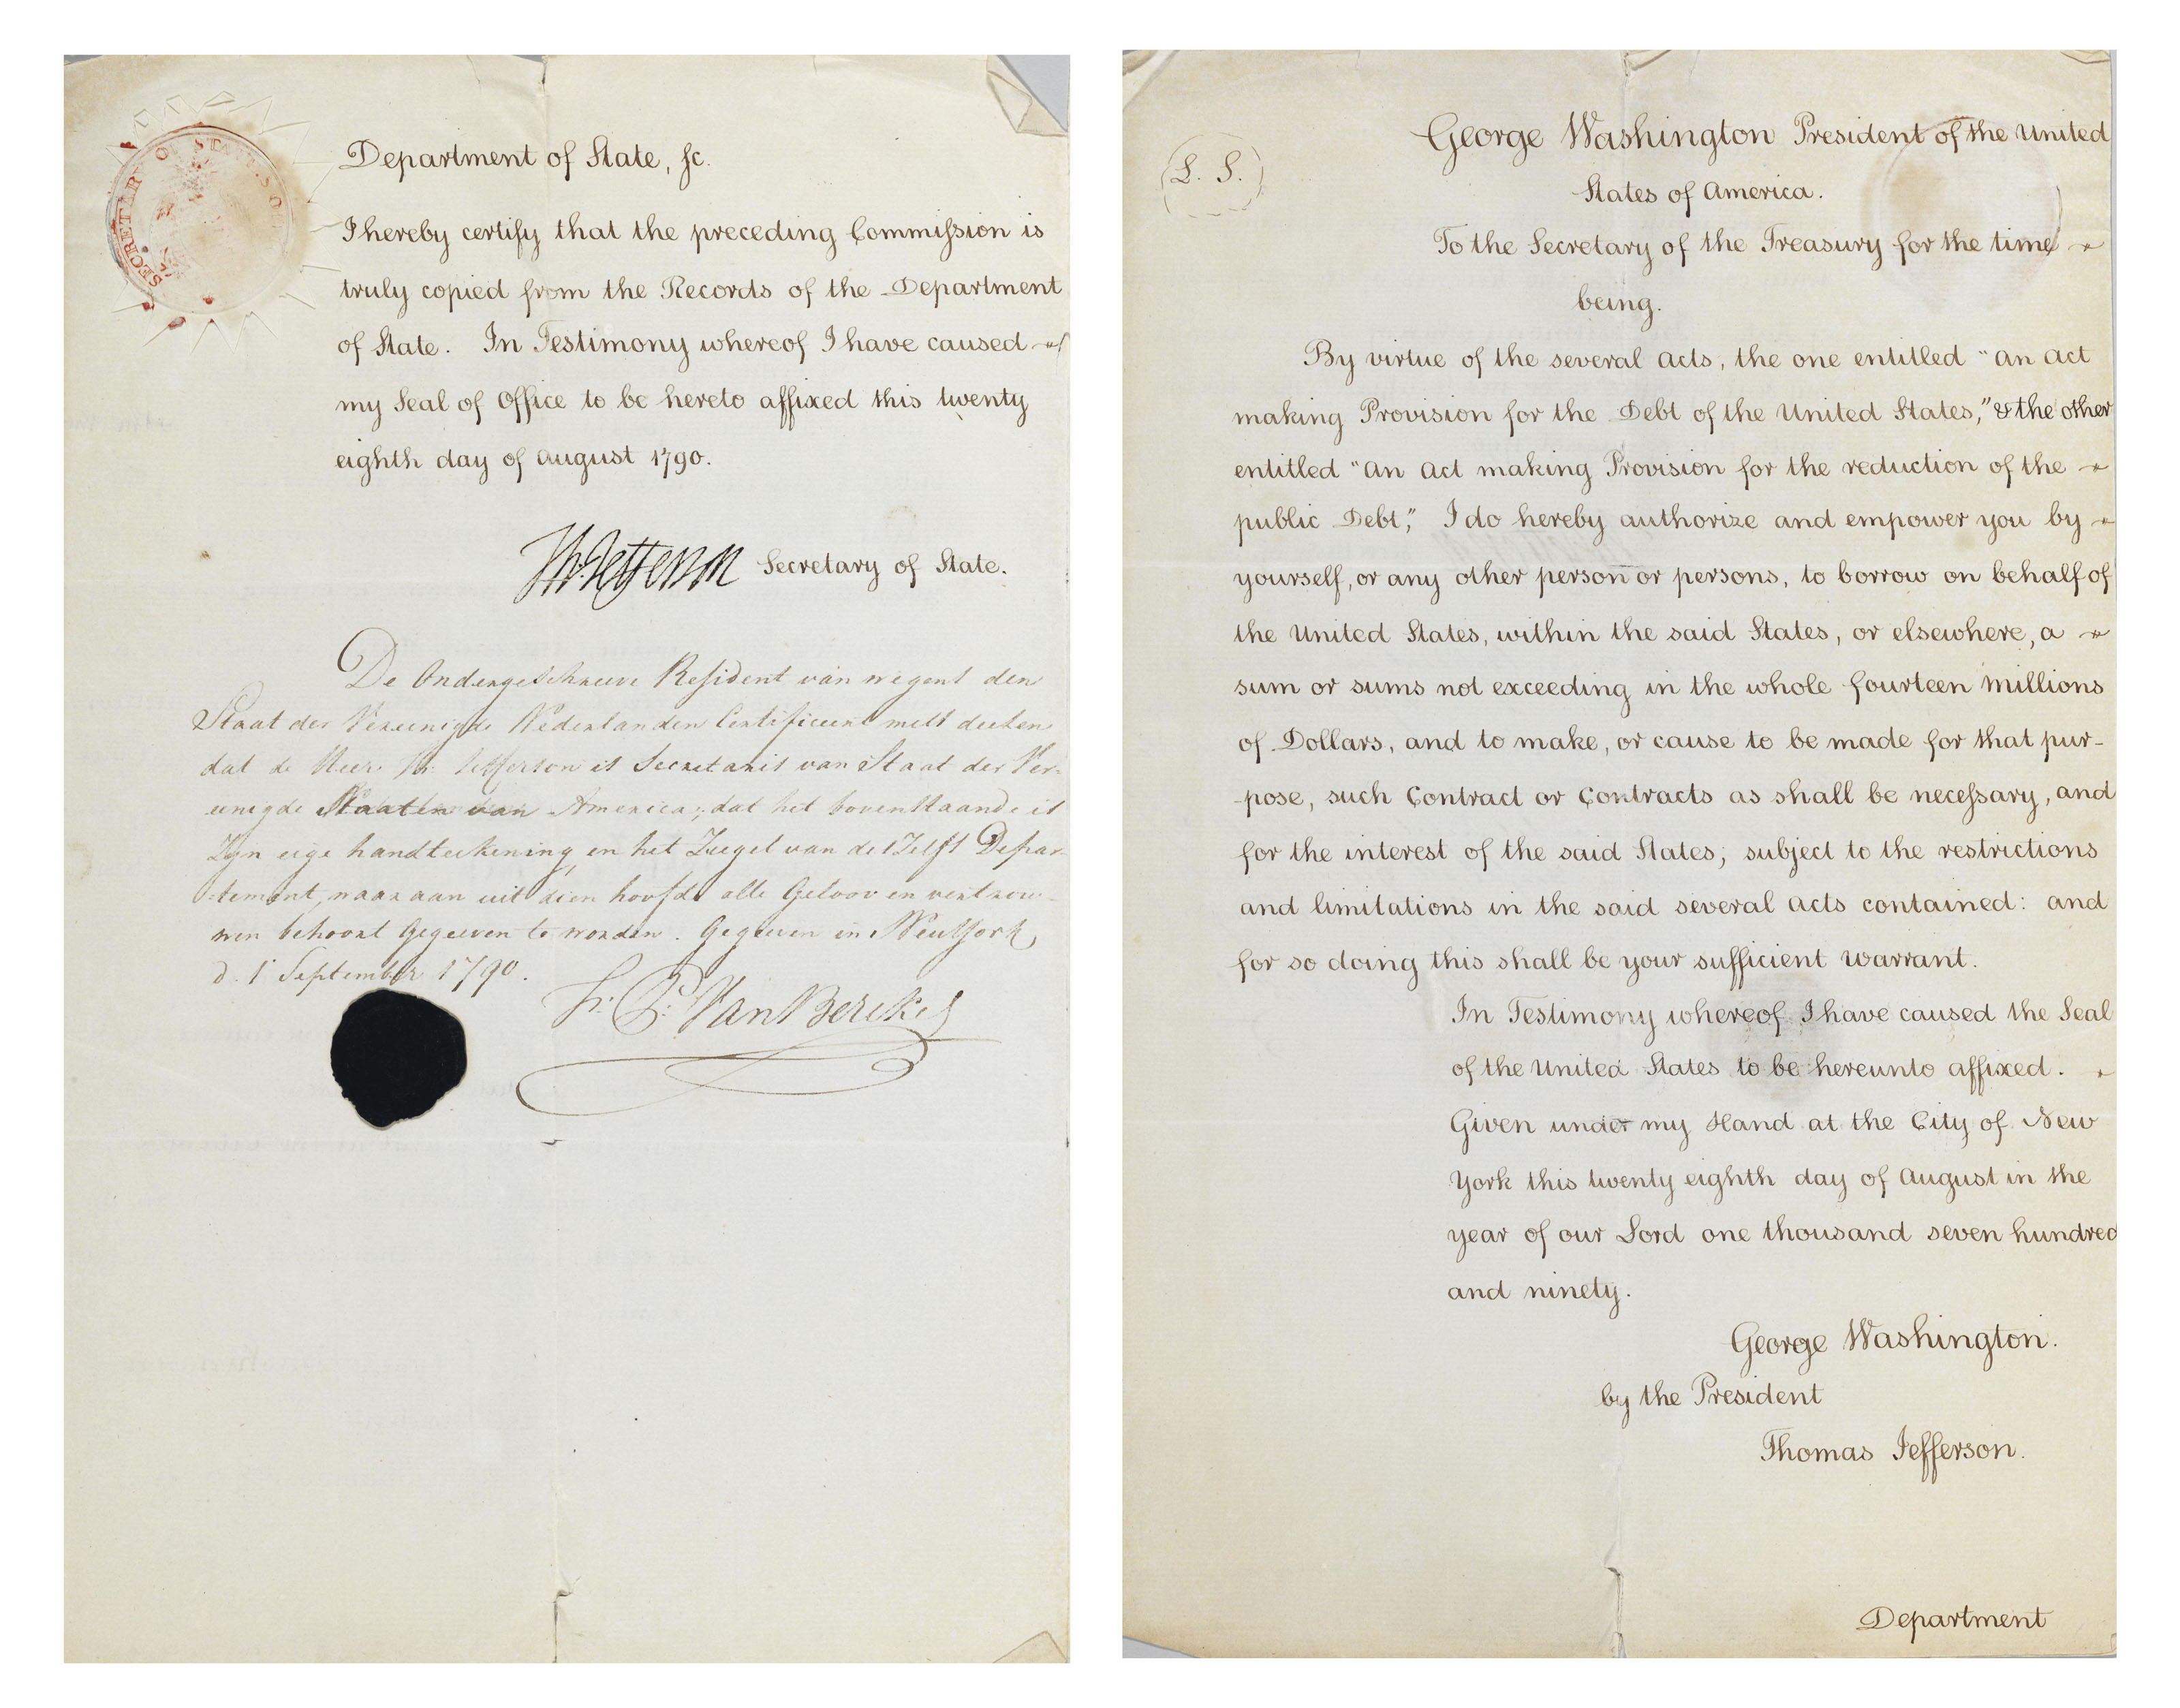 SECRETER O STATE.S O
Department of State, sc.
I hereby certify that the preceding Commission is
truly copied from the Records of the Department
of State. In Testimony whereof I have caused
my Seal of Office to be hereto affixed this twenty
eighth day of August 1790.
Th: Jefferson Secretary of State.
De Ondergeschreeve Resident van wegens den
Staat der Vereenigde Nederlanden Certificeert mits deesen
dat de Heer Th: Jefferson is Secretaris van Staat der Ver-
eenigde Staaten van America; dat het bovenstaande is
Zyn eige handteekening en het Zeegel van des Zelfs Depar-
tement, waar aan uit dien hoofde alle Geloov en vertrou-
wen behoort Gegeeven te worden. Gegeeven in New York,
d. 1 September 1790.
F. P. Van Berckel
L. S.
George Washington President of the United
States of America.
To the Secretary of the Treasury for the time
being.
By virtue of the several Acts, the one entitled "An Act
making Provision for the Debt of the United States," & the other
entitled "An Act making Provision for the reduction of the
public Debt," I do hereby authorize and empower you by
yourself, or any other person or persons, to borrow on behalf of
the United States, within the said States, or elsewhere, a
sum or sums not exceeding in the whole fourteen Millions
of Dollars, and to make, or cause to be made for that pur-
-pose, such Contract or Contracts as shall be necessary, and
for the interest of the said States; subject to the restrictions
and limitations in the said several Acts contained: and
for so doing this shall be your sufficient warrant.
In Testimony whereof I have caused the Seal
of the United States to be hereunto affixed.
Given under my Hand at the City of New
York this twenty eighth day of August in the
year of our Lord one thousand seven hundred
and ninety.
George Washington.
by the President
Thomas Jefferson.
Department